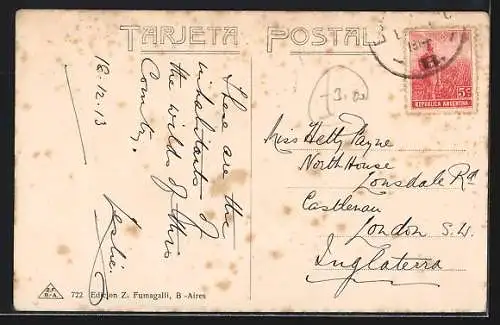 TARJETA POSTAL
18.12.13
These are the
inhabitants of
the wilds of this
Country.
Leslie.
-3.00
Miss Hetty Payne
North House
Lonsdale Rd
Castlenau
London S.W.
Inglaterra
5c
REPUBLICA ARGENTINA
772 Edicion Z. Fumagalli, B-Aires